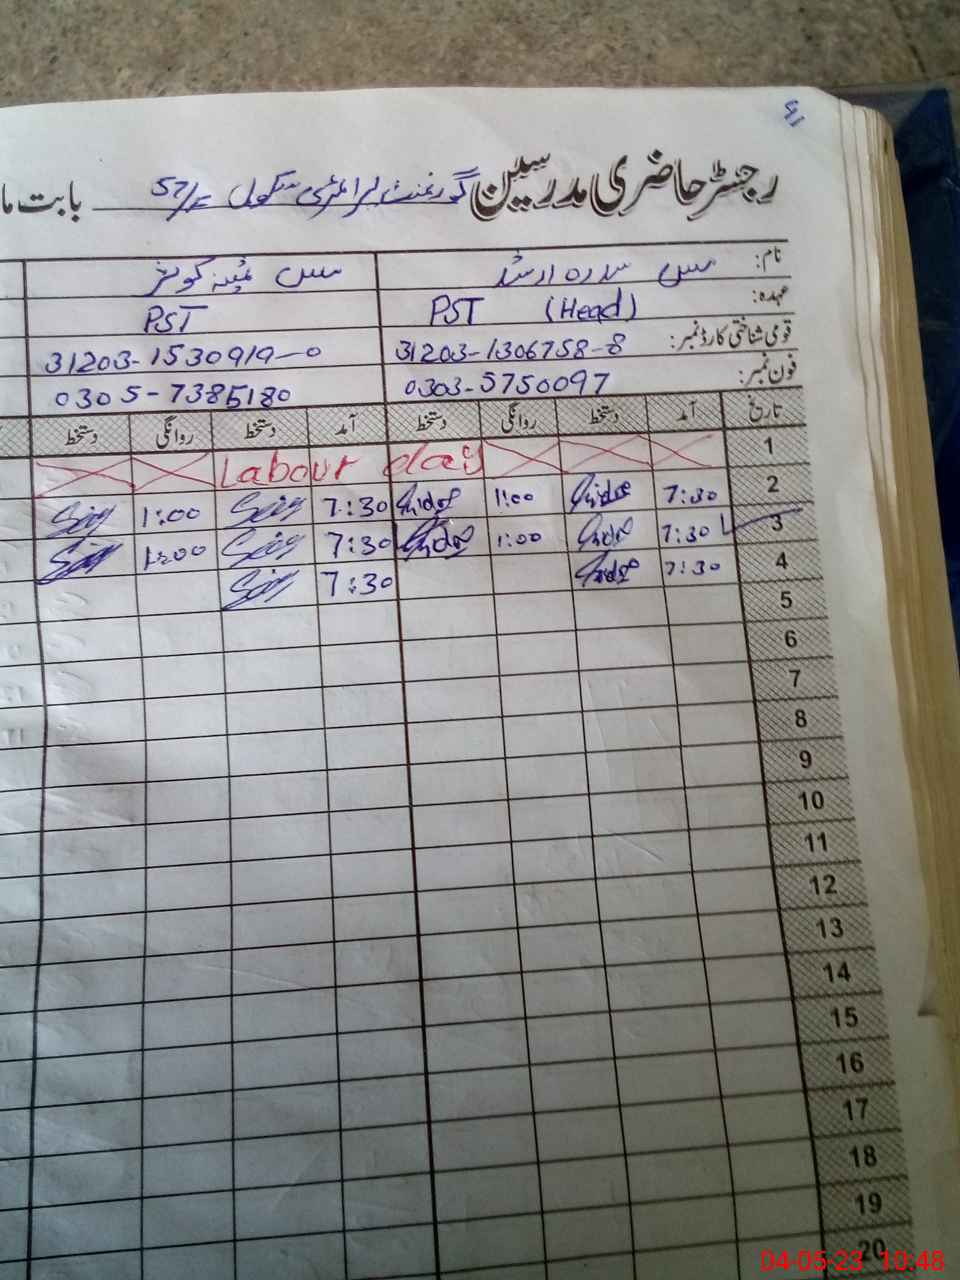 رجسٹر حاضری مدرسین گورنمنٹ پرائمری سکول 57/F بابت ما
نام: مس سدرہ ارشد مس ثمینہ کوثر
عہدہ: PST (Head) PST
قومی شناختی کارڈ نمبر: 31203-1306758-8 31203-1530919-0
فون نمبر: 0303-5750097 0305-7385180
تاریخ آمد دستخط روانگی دستخط آمد دستخط روانگی دستخط
1 Labour day
2 7:30 1:00 7:30 1:00
3 7:30 1:00 7:30 1:00
4 7:30 7:30
5
6
7
8
9
10
11
12
13
14
15
16
17
18
19
20
04-05-23 10:48